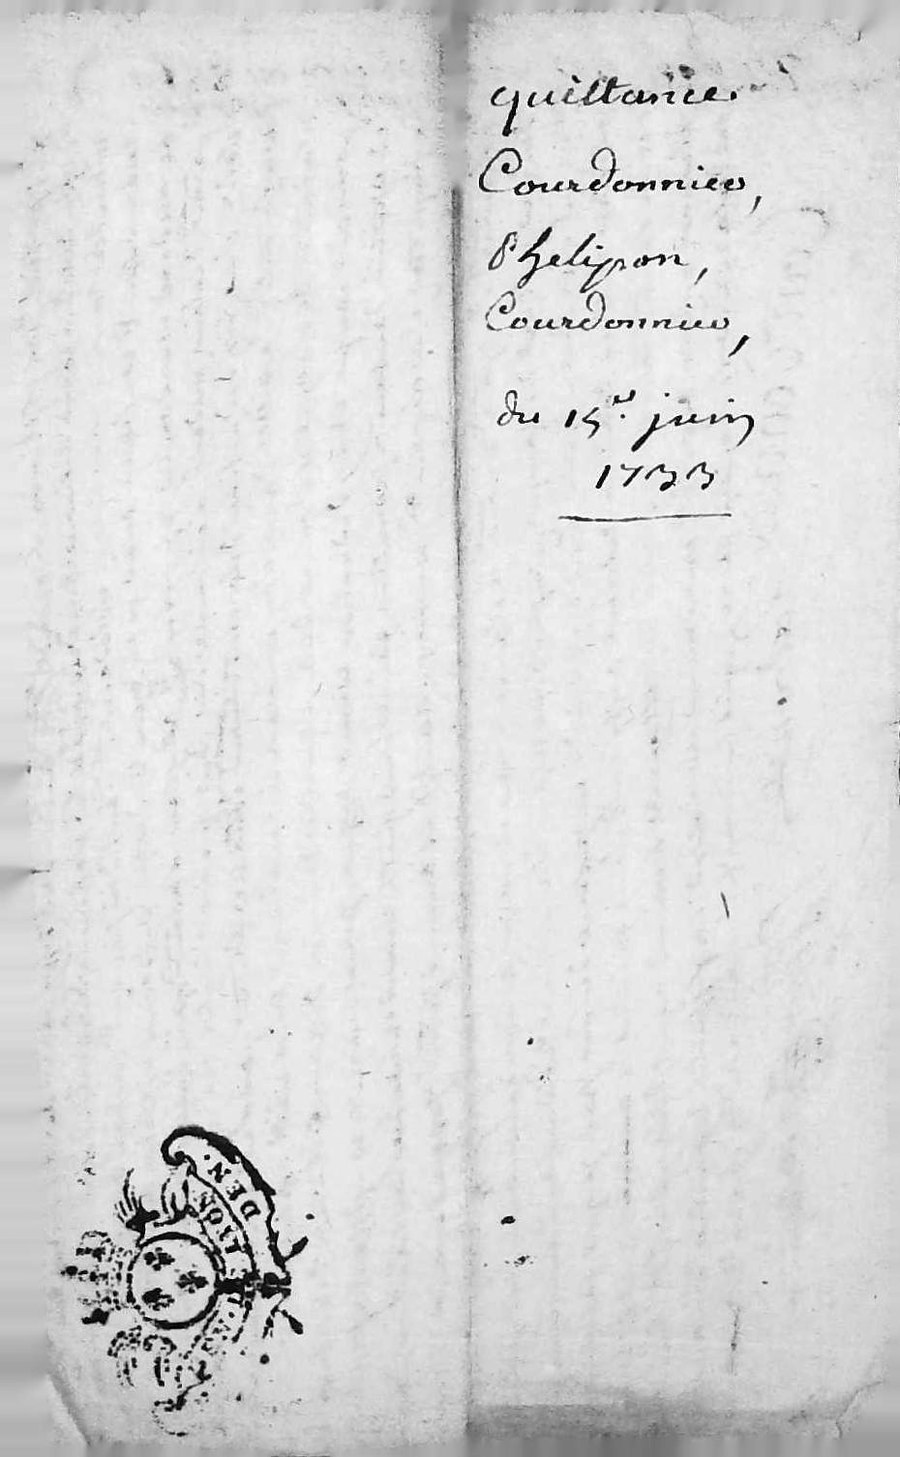 quittance
Courdonnier,
Phelipon,
Courdonnier,
du 15.e juin
1733
DEN.